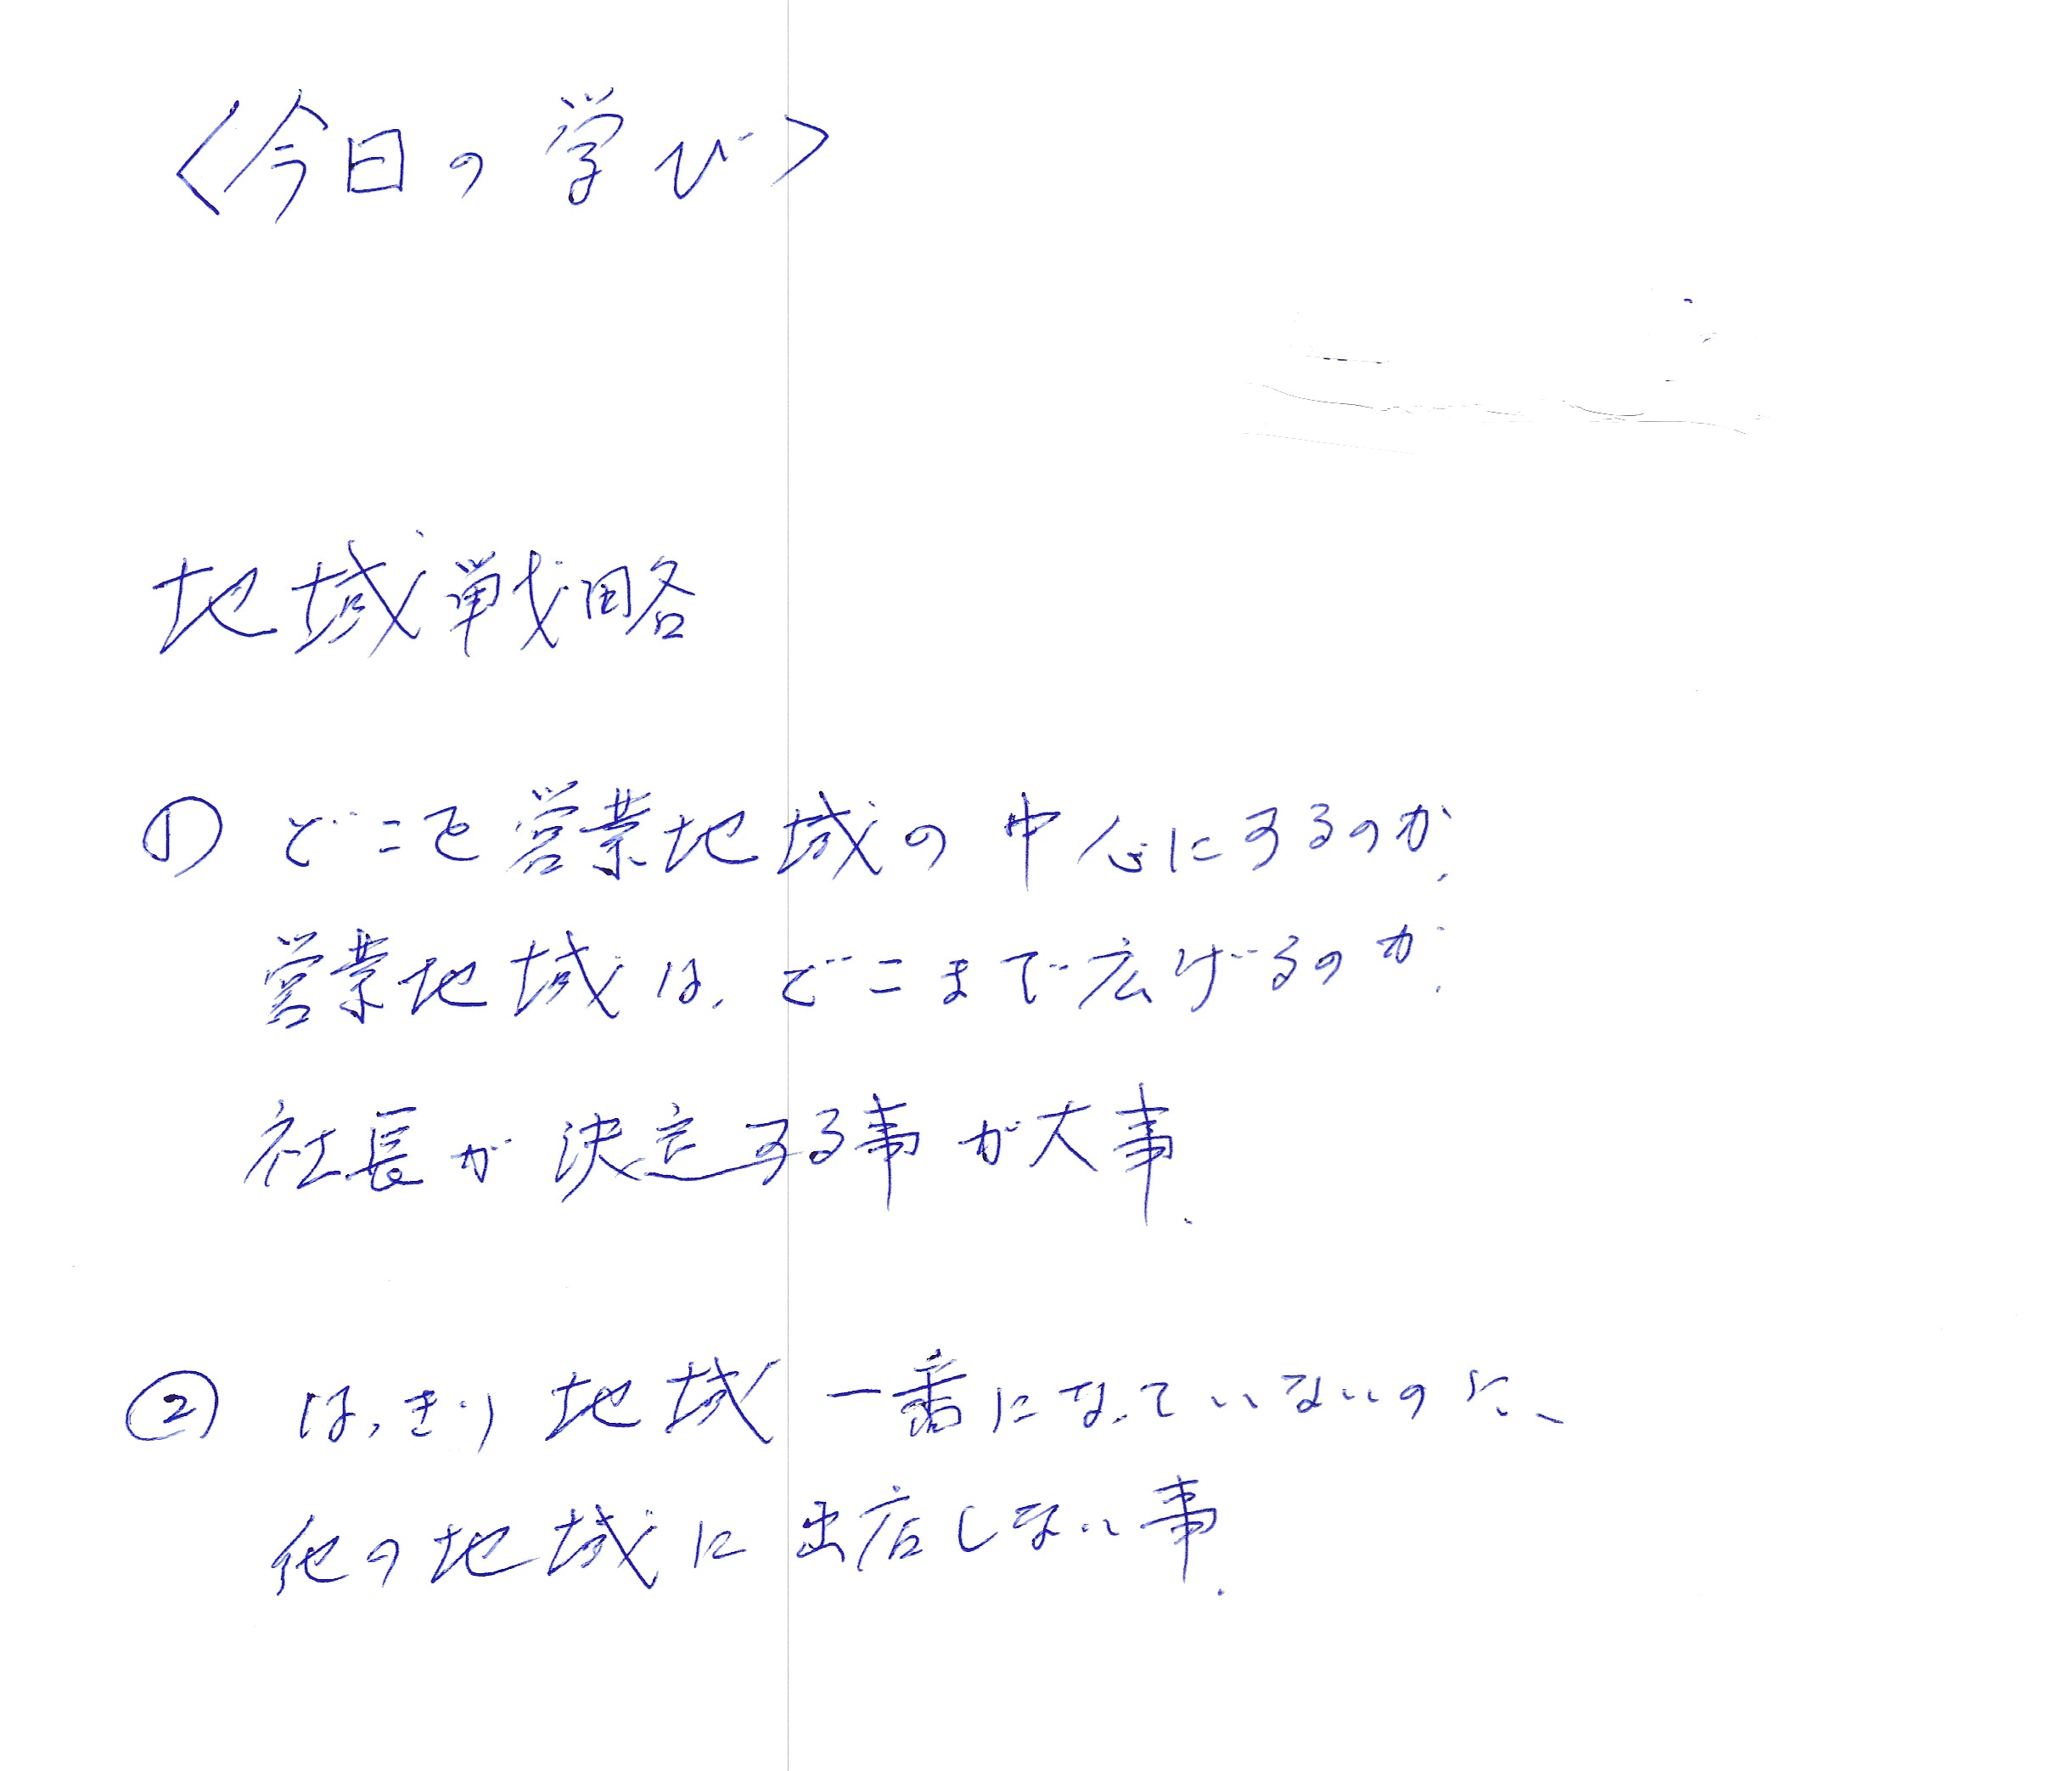 〈今日の学び〉
地域戦略
① どこを営業地域の中心にするのか、
営業地域は、どこまで広げるのか、
社長が決定する事が大事.
② はっきり地域一番になっていないのに、
他の地域に出店しない事.